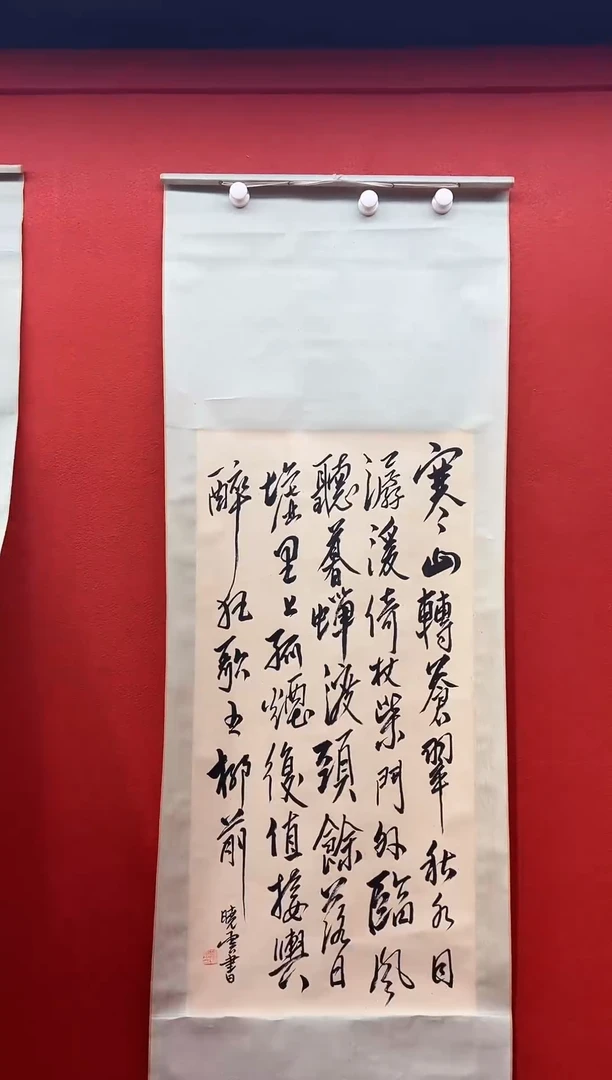 寒山轉蒼翠秋水日
潺湲倚杖柴門外臨風
聽暮蟬渡頭餘落日
墟里上孤煙復值接輿
醉狂歌五柳前
晓雲書